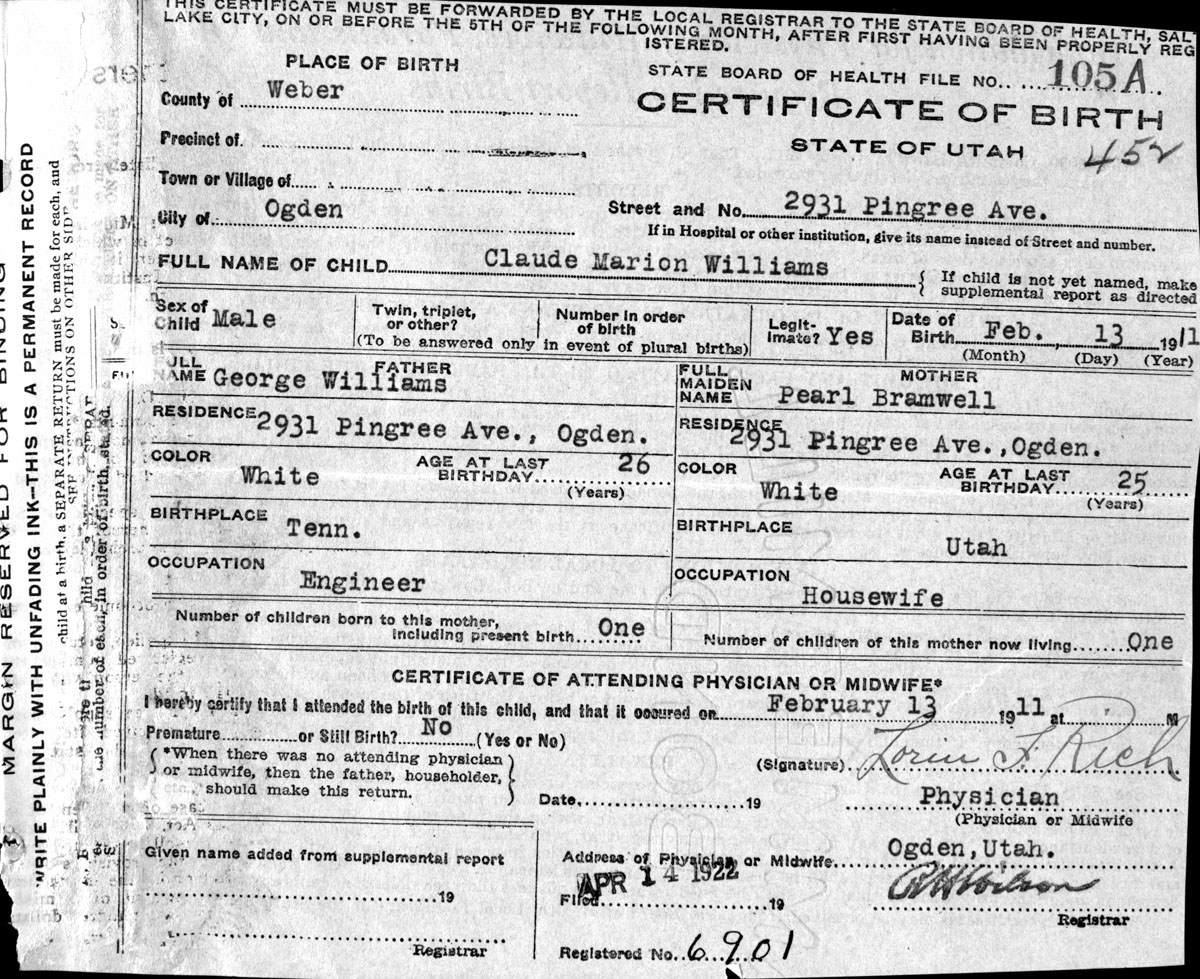 THIS CERTIFICATE MUST BE FORWARDED BY THE LOCAL REGISTRAR TO THE STATE BOARD OF HEALTH, SALT
LAKE CITY, ON OR BEFORE THE 5TH OF THE FOLLOWING MONTH, AFTER FIRST HAVING BEEN PROPERLY REG
ISTERED.
PLACE OF BIRTH
STATE BOARD OF HEALTH FILE NO. 105A
County of Weber
CERTIFICATE OF BIRTH
Precinct of
STATE OF UTAH
452
Town or Village of
City of Ogden
Street and No. 2931 Pingree Ave.
If in Hospital or other institution, give its name instead of Street and number.
FULL NAME OF CHILD Claude Marion Williams
{ If child is not yet named, make
supplemental report as directed
Sex of Child Male
Twin, triplet, or other?
Number in order of birth
(To be answered only in event of plural births)
Legit- imate? Yes
Date of Birth Feb. 13 1911
(Month) (Day) (Year)
FATHER
FULL NAME George Williams
MOTHER
FULL MAIDEN NAME Pearl Bramwell
RESIDENCE 2931 Pingree Ave., Ogden.
RESIDENCE 2931 Pingree Ave.,Ogden.
COLOR White
AGE AT LAST BIRTHDAY 26
(Years)
COLOR White
AGE AT LAST BIRTHDAY 25
(Years)
BIRTHPLACE Tenn.
BIRTHPLACE Utah
OCCUPATION Engineer
OCCUPATION Housewife
Number of children born to this mother,
including present birth One
Number of children of this mother now living One
CERTIFICATE OF ATTENDING PHYSICIAN OR MIDWIFE*
I hereby certify that I attended the birth of this child, and that it occured on February 13 1911 at M
Premature or Still Birth? No (Yes or No)
{ *When there was no attending physician
or midwife, then the father, householder,
etc., should make this return. }
(Signature) Lorin F. Rich
Date 19
Physician
(Physician or Midwife
Given name added from supplemental report
19
Registrar
Address of Physician or Midwife Ogden,Utah.
APR 14 1922
Filed 19
R H Wilson
Registrar
Registered No. 6901
MARGIN RESERVED FOR BINDING
WRITE PLAINLY WITH UNFADING INK—THIS IS A PERMANENT RECORD
child at a birth, a SEPARATE RETURN must be made for each, and
the number of each, in order of birth, stated.